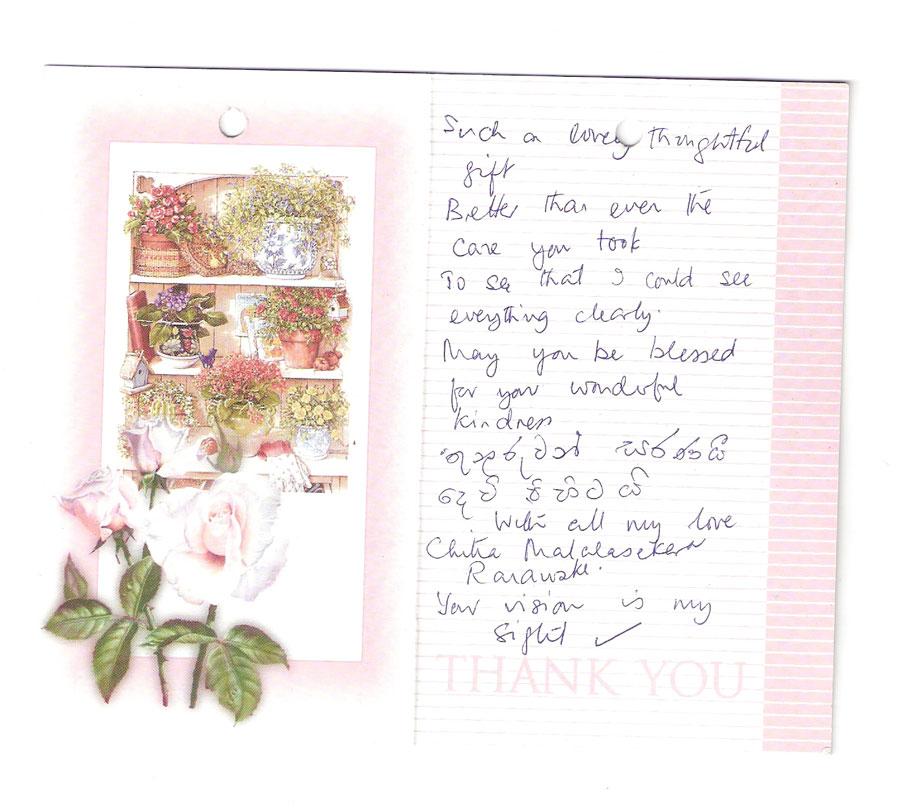 Such a lovely thoughtful
gift
Better than even the
care you took
To see that I could see
everything clearly.
May you be blessed
for your wonderful
kindness
තුනුරුවන් සරණයි
දෙවි පිහිටයි
With all my love
Chitra Malalasekera
Ranawake.
Your vision is my
sight ✓
THANK YOU